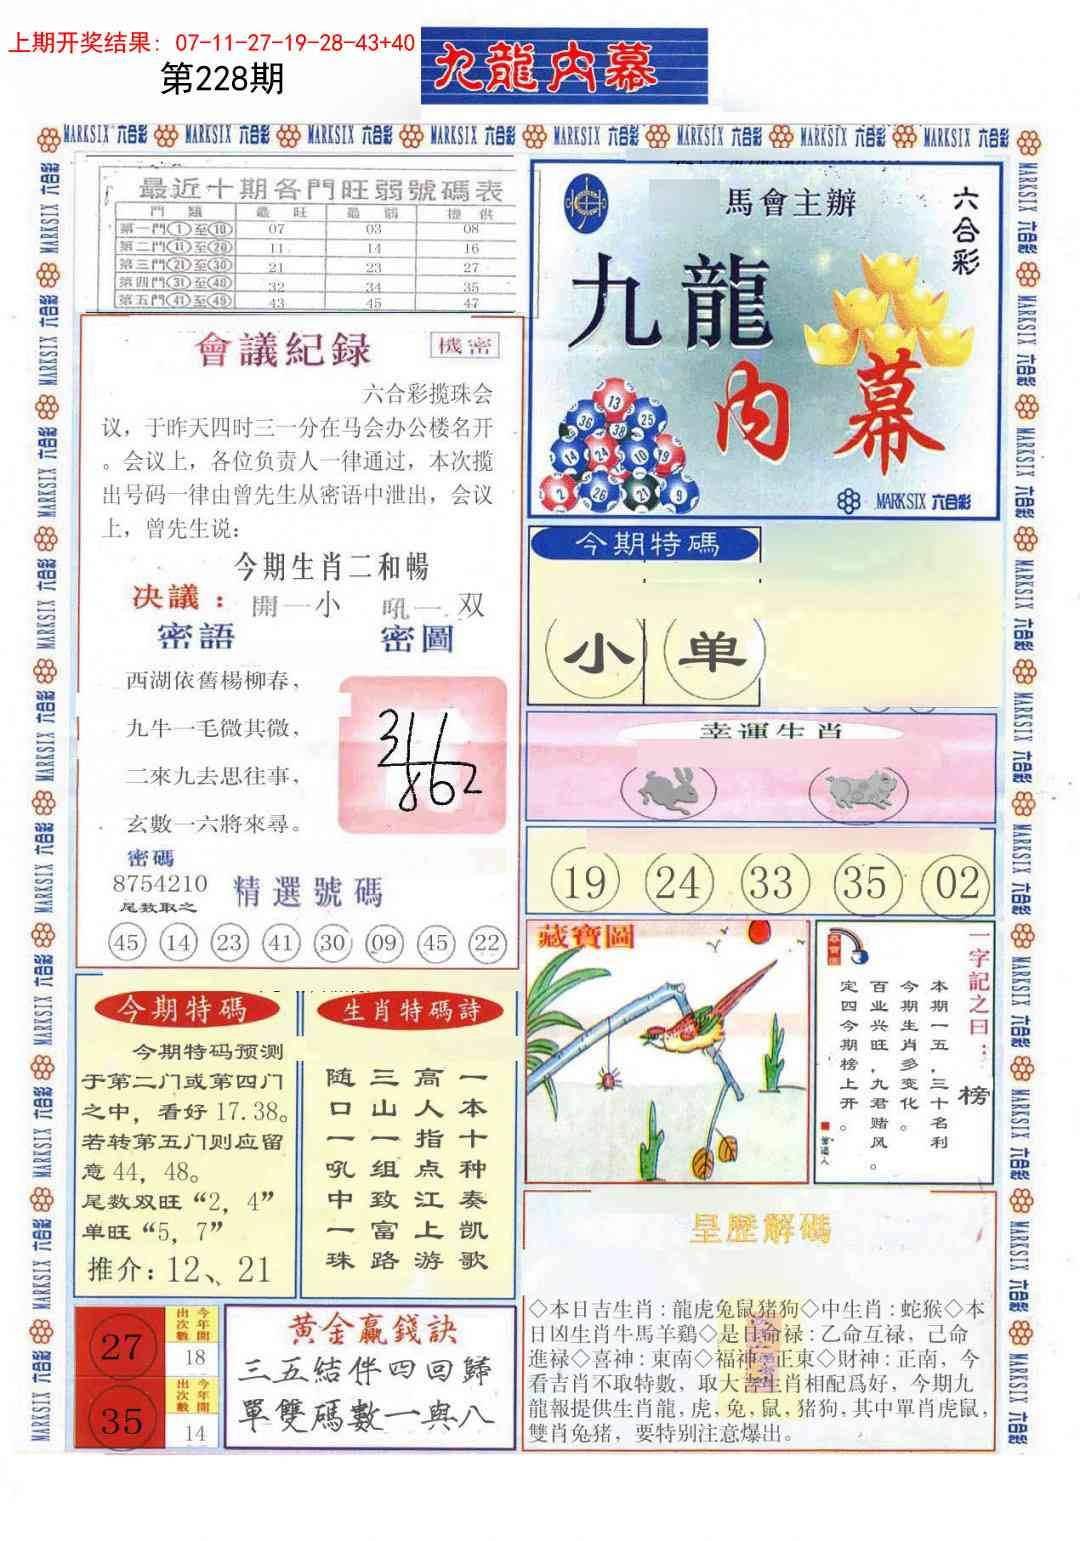 上期开奖结果：07-11-27-19-28-43+40
第228期
九龍内幕
MARKSIX 六合彩 MARKSIX 六合彩 MARKSIX 六合彩 MARKSIX 六合彩 MARKSIX 六合彩 MARKSIX 六合彩 MARKSIX 六合彩 MARKSIX 六合彩
最近十期各門旺弱號碼表
門 類 最 旺 最 弱 提 供
第一門①至⑩ 07 03 08
第二門⑪至⑳ 11 14 16
第三門㉑至㉚ 21 23 27
第四門㉛至㊵ 32 34 35
第五門㊶至㊾ 43 45 47
馬會主辦
六合彩
九龍
内幕
13
36 38 25
14 24 10 19
2 26 21 9
MARKSIX 六合彩
會議紀録
機密
六合彩揽珠会
议，于昨天四时三一分在马会办公楼名开
。会议上，各位负责人一律通过，本次揽
出号码一律由曾先生从密语中泄出，会议
上，曾先生说：
今期生肖二和暢
决議：開一小 吼一双
密語 密圖
西湖依舊楊柳春，
九牛一毛微其微，
二來九去思往事，
玄數一六將來尋。
密碼
8754210
尾数取之
精選號碼
45 14 23 41 30 09 45 22
今期特碼
小 单
幸運生肖
19 24 33 35 02
藏寶圖
一字記之曰：榜
本期一五，三十名利
今期生肖多变化。
百业兴旺，九君赌风。
定四今期榜上开。
今期特碼
今期特码预测
于第二门或第四门
之中，看好 17.38。
若转第五门则应留
意 44，48。
尾数双旺“2，4”
单旺“5，7”
推介：12、21
生肖特碼詩
一本十种奏凯歌
高人指点江上游
三山一组致富路
随口一吼中一珠
27
今年開出次數
18
35
今年開出次數
14
黄金贏錢訣
三五結伴四回歸
單雙碼數一與八
皇歷解碼
◇本日吉生肖：龍虎兔鼠猪狗◇中生肖：蛇猴◇本
日凶生肖牛馬羊鷄◇是日命禄：乙命互禄，己命
進禄◇喜神：東南◇福神：正東◇財神：正南，今
看吉肖不取特數，取大吉生肖相配爲好，今期九
龍報提供生肖龍，虎，兔，鼠，猪狗，其中單肖虎鼠，
雙肖兔猪，要特别注意爆出。